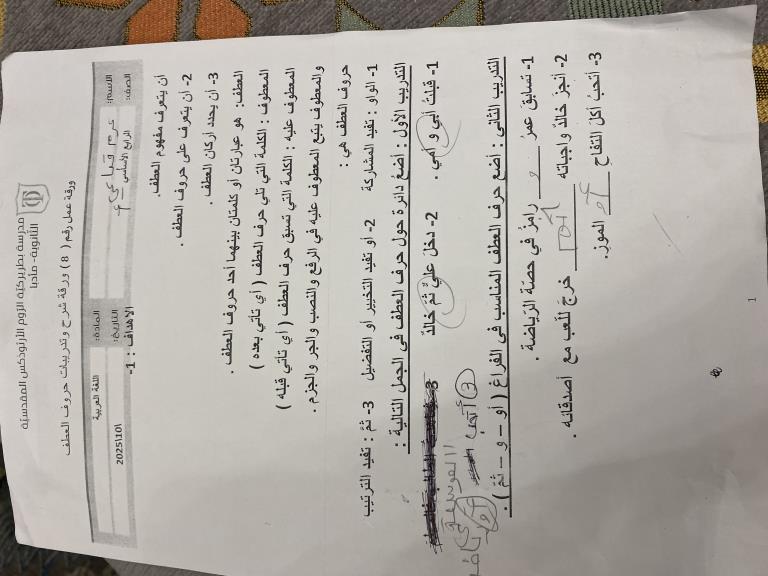 مدرسة بطريركيّة الرّوم الأرثوذكس المقدسيّة
الثّانوية- مادبا
ورقة عمل رقم ( 8 ) ورقة شرح وتدريبات حروف العطف
الاسم: المادة: اللغة العربية
الصف: الرابع الأساسي التاريخ: 2025\10\
الأهداف : 1-
أن يتعرف مفهوم العطف.
2- أن يتعرف على حروف العطف .
3- أن يحدد أركان العطف .
العطف: هو عبارتان أو كلمتان بينهما أحد حروف العطف .
المعطوف : الكلمة التي تلي حرف العطف ( أي تأتي بعده )
المعطوف عليه : الكلمة التي تسبق حرف العطف ( أي تأتي قبله )
والمعطوف يتبع المعطوف عليه في الرفع والنصب والجر والجزم .
حروف العطف هي :
1- الواو : تفيد المشاركة 2- أو تفيد التخيير أو التفضيل 3- ثمّ : تفيد الترتيب
التدريب الأول : أضع دائرة حول حرف العطف في الجمل التالية :
1- قبلتُ أبي و أمي . 2- دخلَ عليٌّ ثمّ خالدٌ
3 أحب
التدريب الثاني : أضع حرف العطف المناسب في الفراغ ( أو – و – ثمّ ) .
1- تسابقَ عمرُ و رامزُ في حصّة الرّياضة .
2- أنجزَ خالدٌ واجباته ثم خرجَ للّعب مع أصدقائه .
3- أتحبُ أكلَ التفاحِ أو الموز.
1